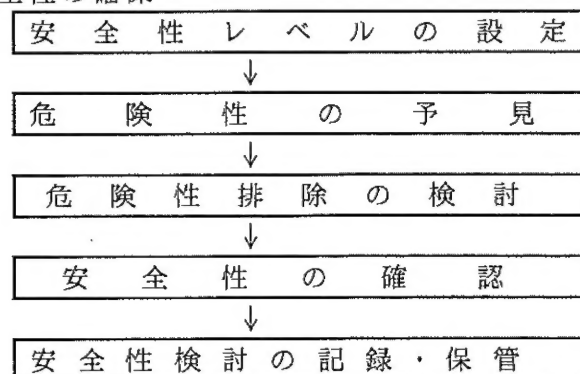 安全性レベルの設定
↓
危険性の予見
↓
危険性排除の検討
↓
安全性の確認
↓
安全性検討の記録・保管